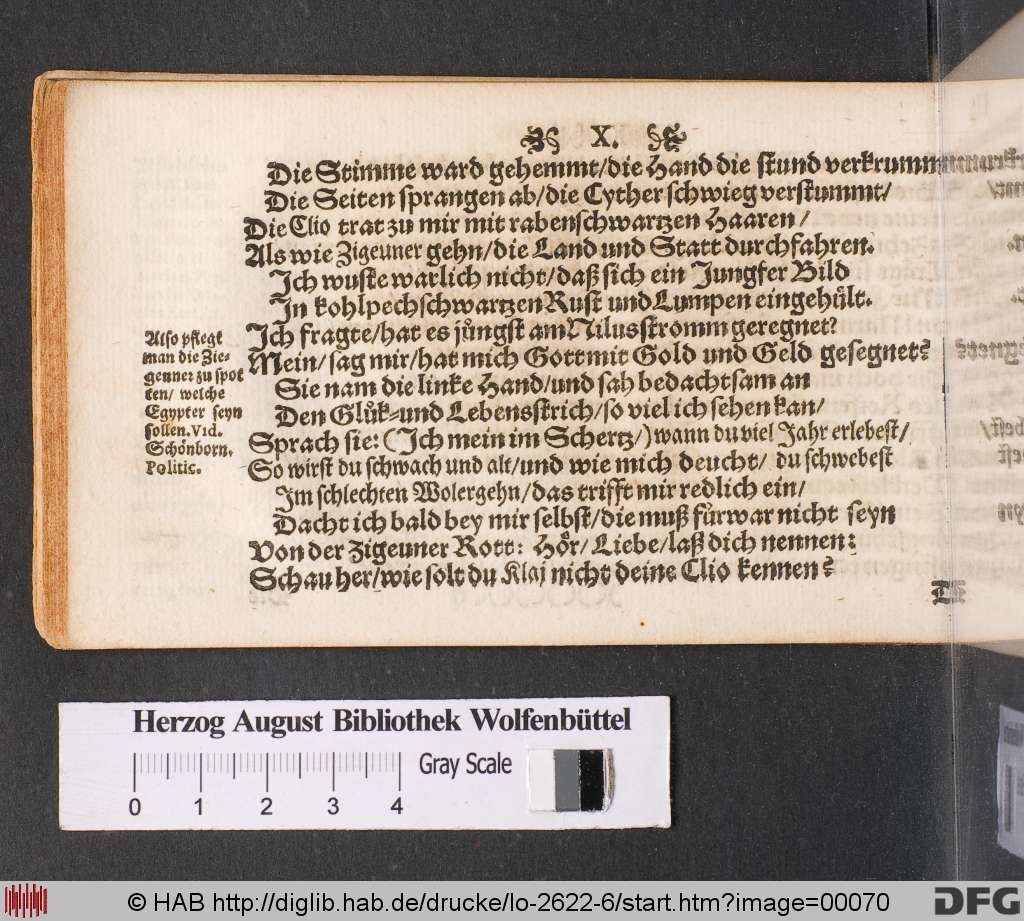 X.
Die Stimme ward gehemmt/die Hand die stund verkrummt
Die Seiten sprangen ab/die Cyther schwieg verstummt/
Die Clio trat zu mir mit rabenschwartzen Haaren/
Als wie Zigeuner gehn/die Land und Statt durchfahren.
Jch wuste warlich nicht/daß sich ein Jungfer Bild
Jn kohlpechschwartzen Rust und Lumpen eingehüllt.
Jch fragte/hat es jüngst am Nilusstromm geregnet?
Mein/sag mir/hat mich Gott mit Gold und Geld gesegnet?
Sie nam die linke Hand/und sah bedachtsam an
Den Glük- und Lebensstrich/so viel ich sehen kan/
Sprach sie: (Jch mein im Schertz/) wann du viel Jahr erlebest/
So wirst du schwach und alt/und wie mich deucht/ du schwebest
Jm schlechten Wolergehn/das trifft mir redlich ein/
Dacht ich bald bey mir selbst/die muß fürwar nicht seyn
Von der Zigeuner Rott: Hör/ Liebe/laß dich nennen:
Schau her/wie solt du Klaj nicht deine Clio kennen?
Also pflegt
man die Zie-
genner zu spot
ten/ welche
Egypter seyn
sollen. Vid.
Schönborn.
Politic.
Herzog August Bibliothek Wolfenbüttel
Gray Scale
0 1 2 3 4
© HAB http://diglib.hab.de/drucke/lo-2622-6/start.htm?image=00070
DFG